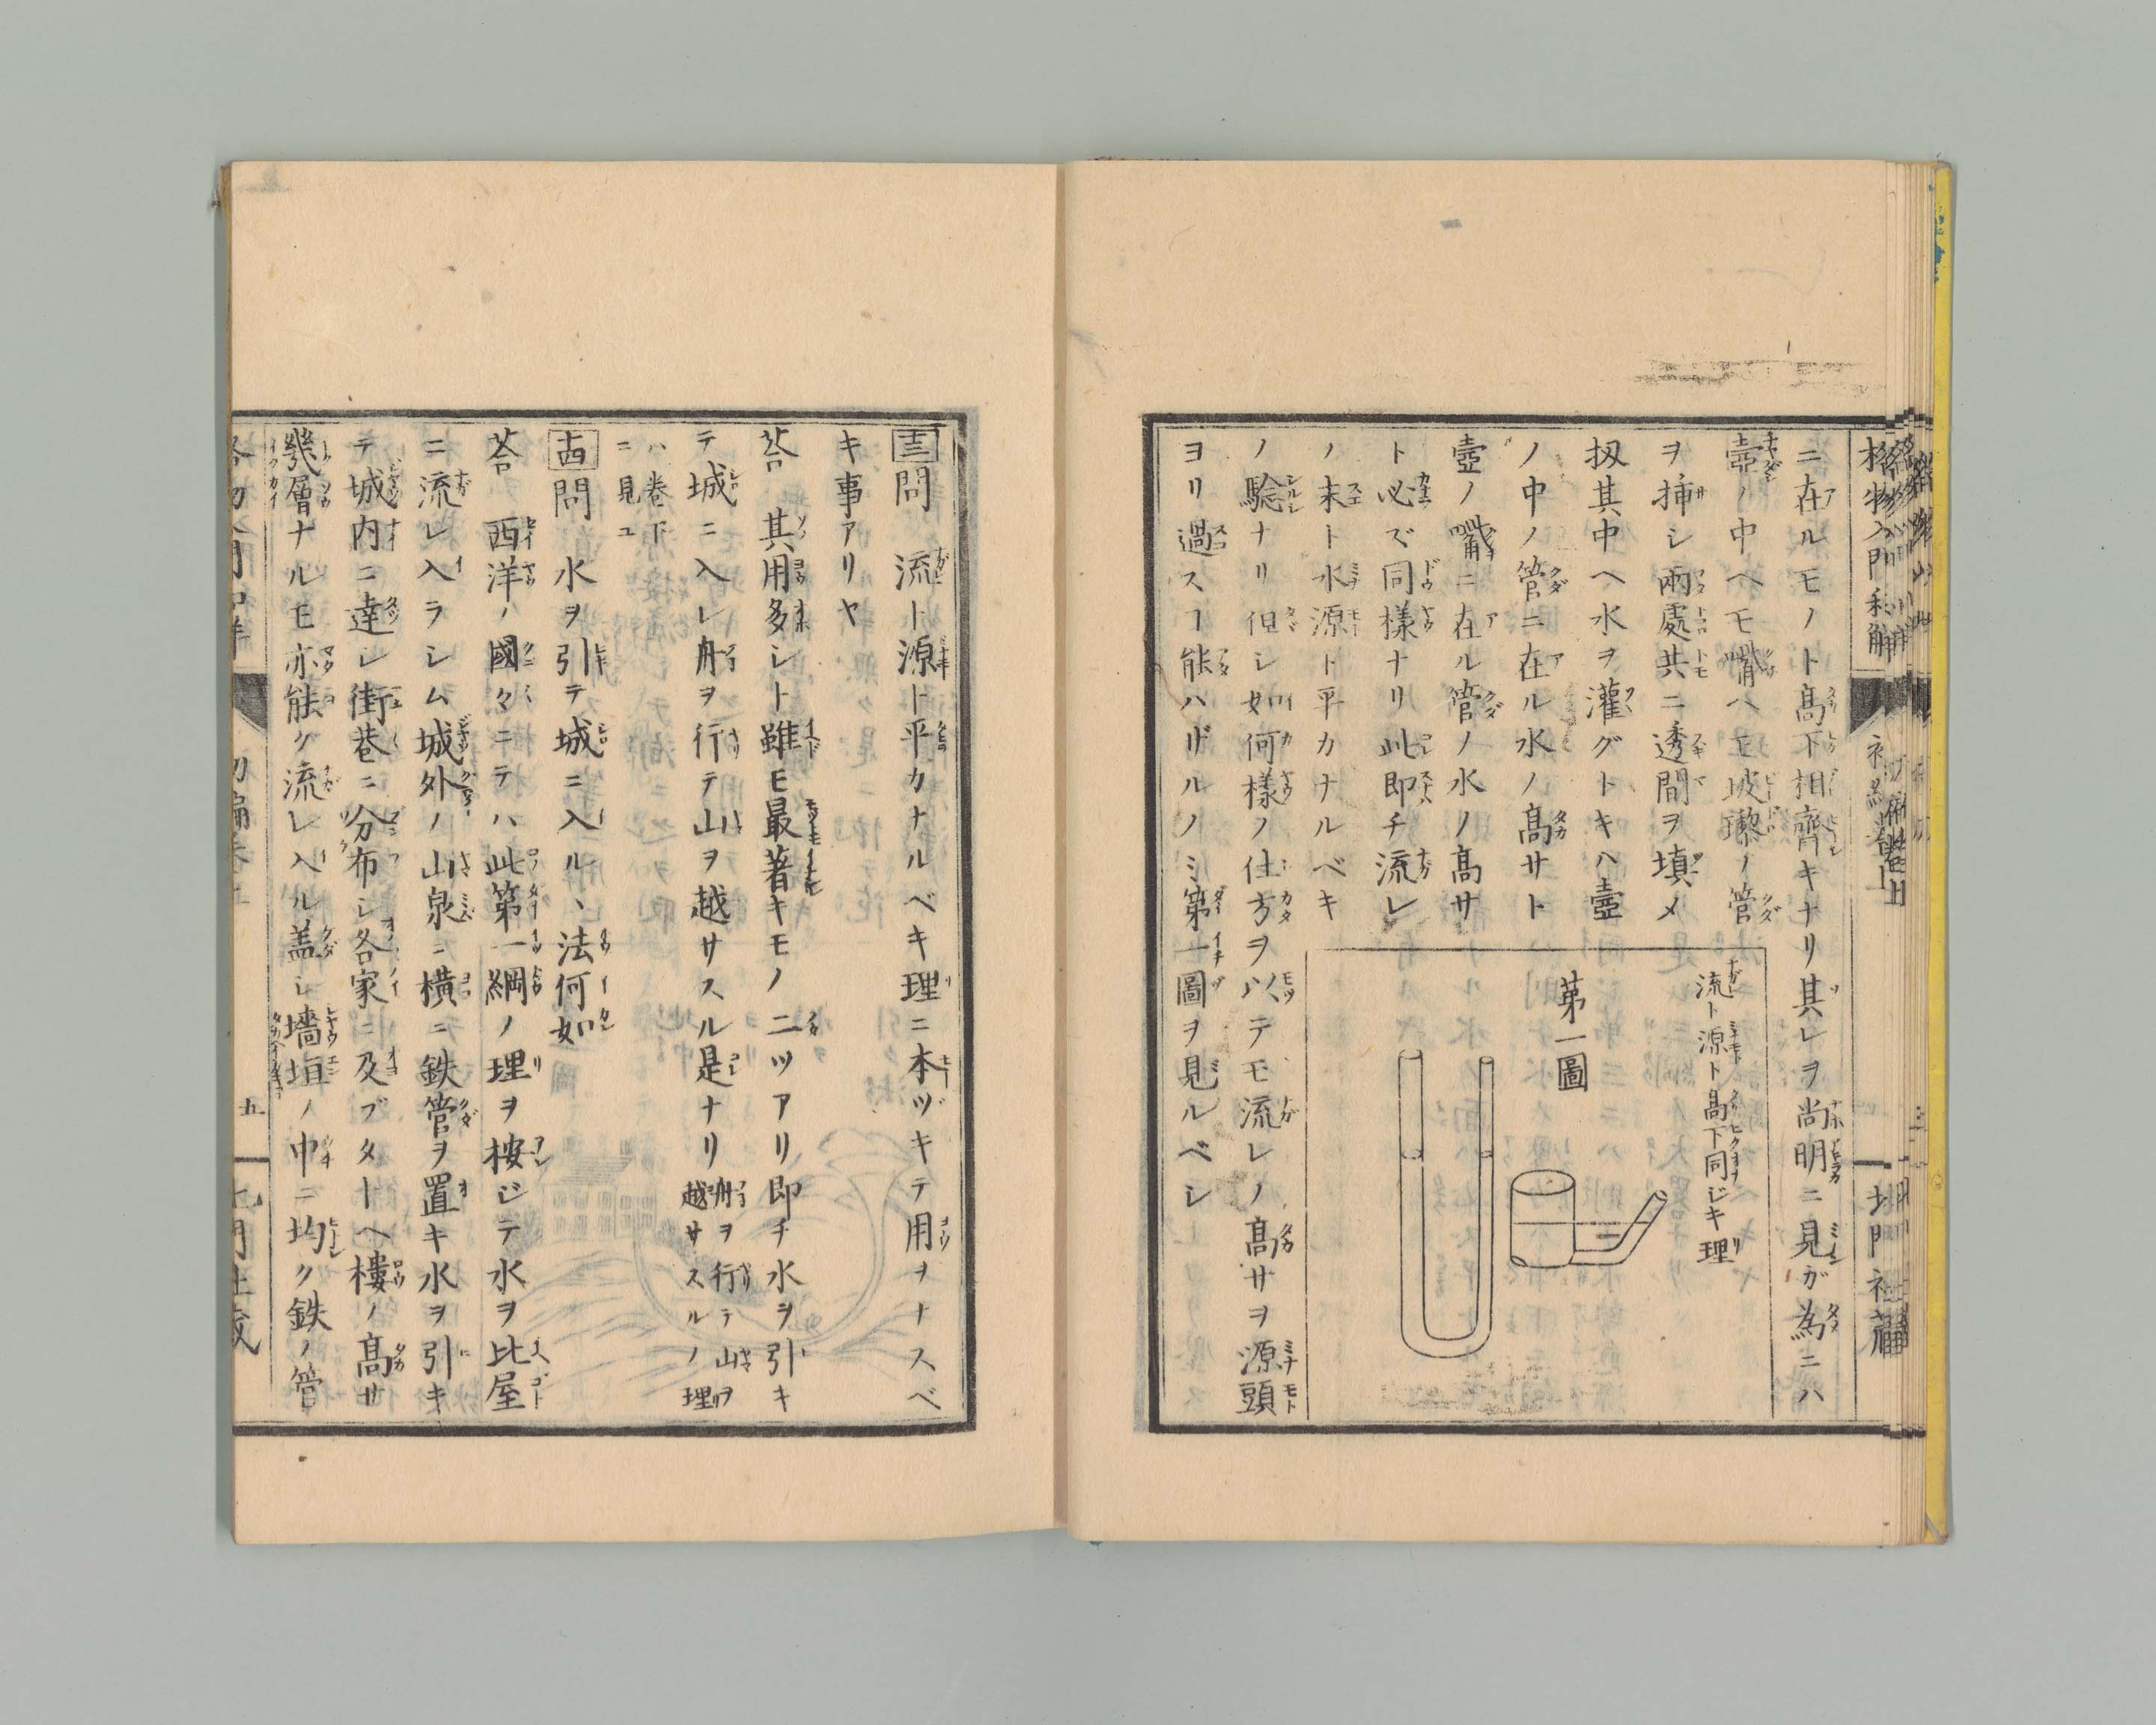 格物入門和解
初編 巻上
北門社蔵
ニ在ルモノト高下相齊キナリ其レヲ尚明ニ見ガ為ニハ
壺ノ中ヘモ嘴ヘモ坡瓈ノ管
ヲ挿シ兩處共ニ透間ヲ塡メ
扨其中ヘ水ヲ灌グトキハ壺
ノ中ノ管ニ在ル水ノ高サト
壺ノ嘴ニ在ル管ノ水ノ高サ
ト必ズ同樣ナリ此即チ流レ
ノ末ト水源ト平カナルベキ
ノ驗ナリ但シ如何樣ノ仕方ヲ以テモ流レノ高サヲ源頭
ヨリ過スヿ能ハザルノミ第一圖ヲ見ルベシ
流ト源ト高下同ジキ理
第一圖
十三問 流ト源ト平カナルベキ理ニ本ヅキテ用ヲナスベ
キ事アリヤ
荅 其用多シト雖モ最著キモノ二ツアリ即チ水ヲ引キ
テ城ニ入レ舟ヲ行テ山ヲ越サスル是ナリ 舟ヲ行テ山ヲ
越サスルノ理
ハ巻下
ニ見ユ
十四問 水ヲ引テ城ニ入ル、法何如
荅 西洋ノ國々ニテハ此第一綱ノ理ヲ按ジテ水ヲ比屋
ニ流レ入ラシム城外ノ山泉ニ横ニ鉄管ヲ置キ水ヲ引キ
テ城内ニ達レ街巷ニ分布シ各家ニ及ブターヘ樓ノ高サ
幾層ナルモ亦能ク流レ入ル蓋シ墻垣ノ中ニ均ク鉄ノ管
五